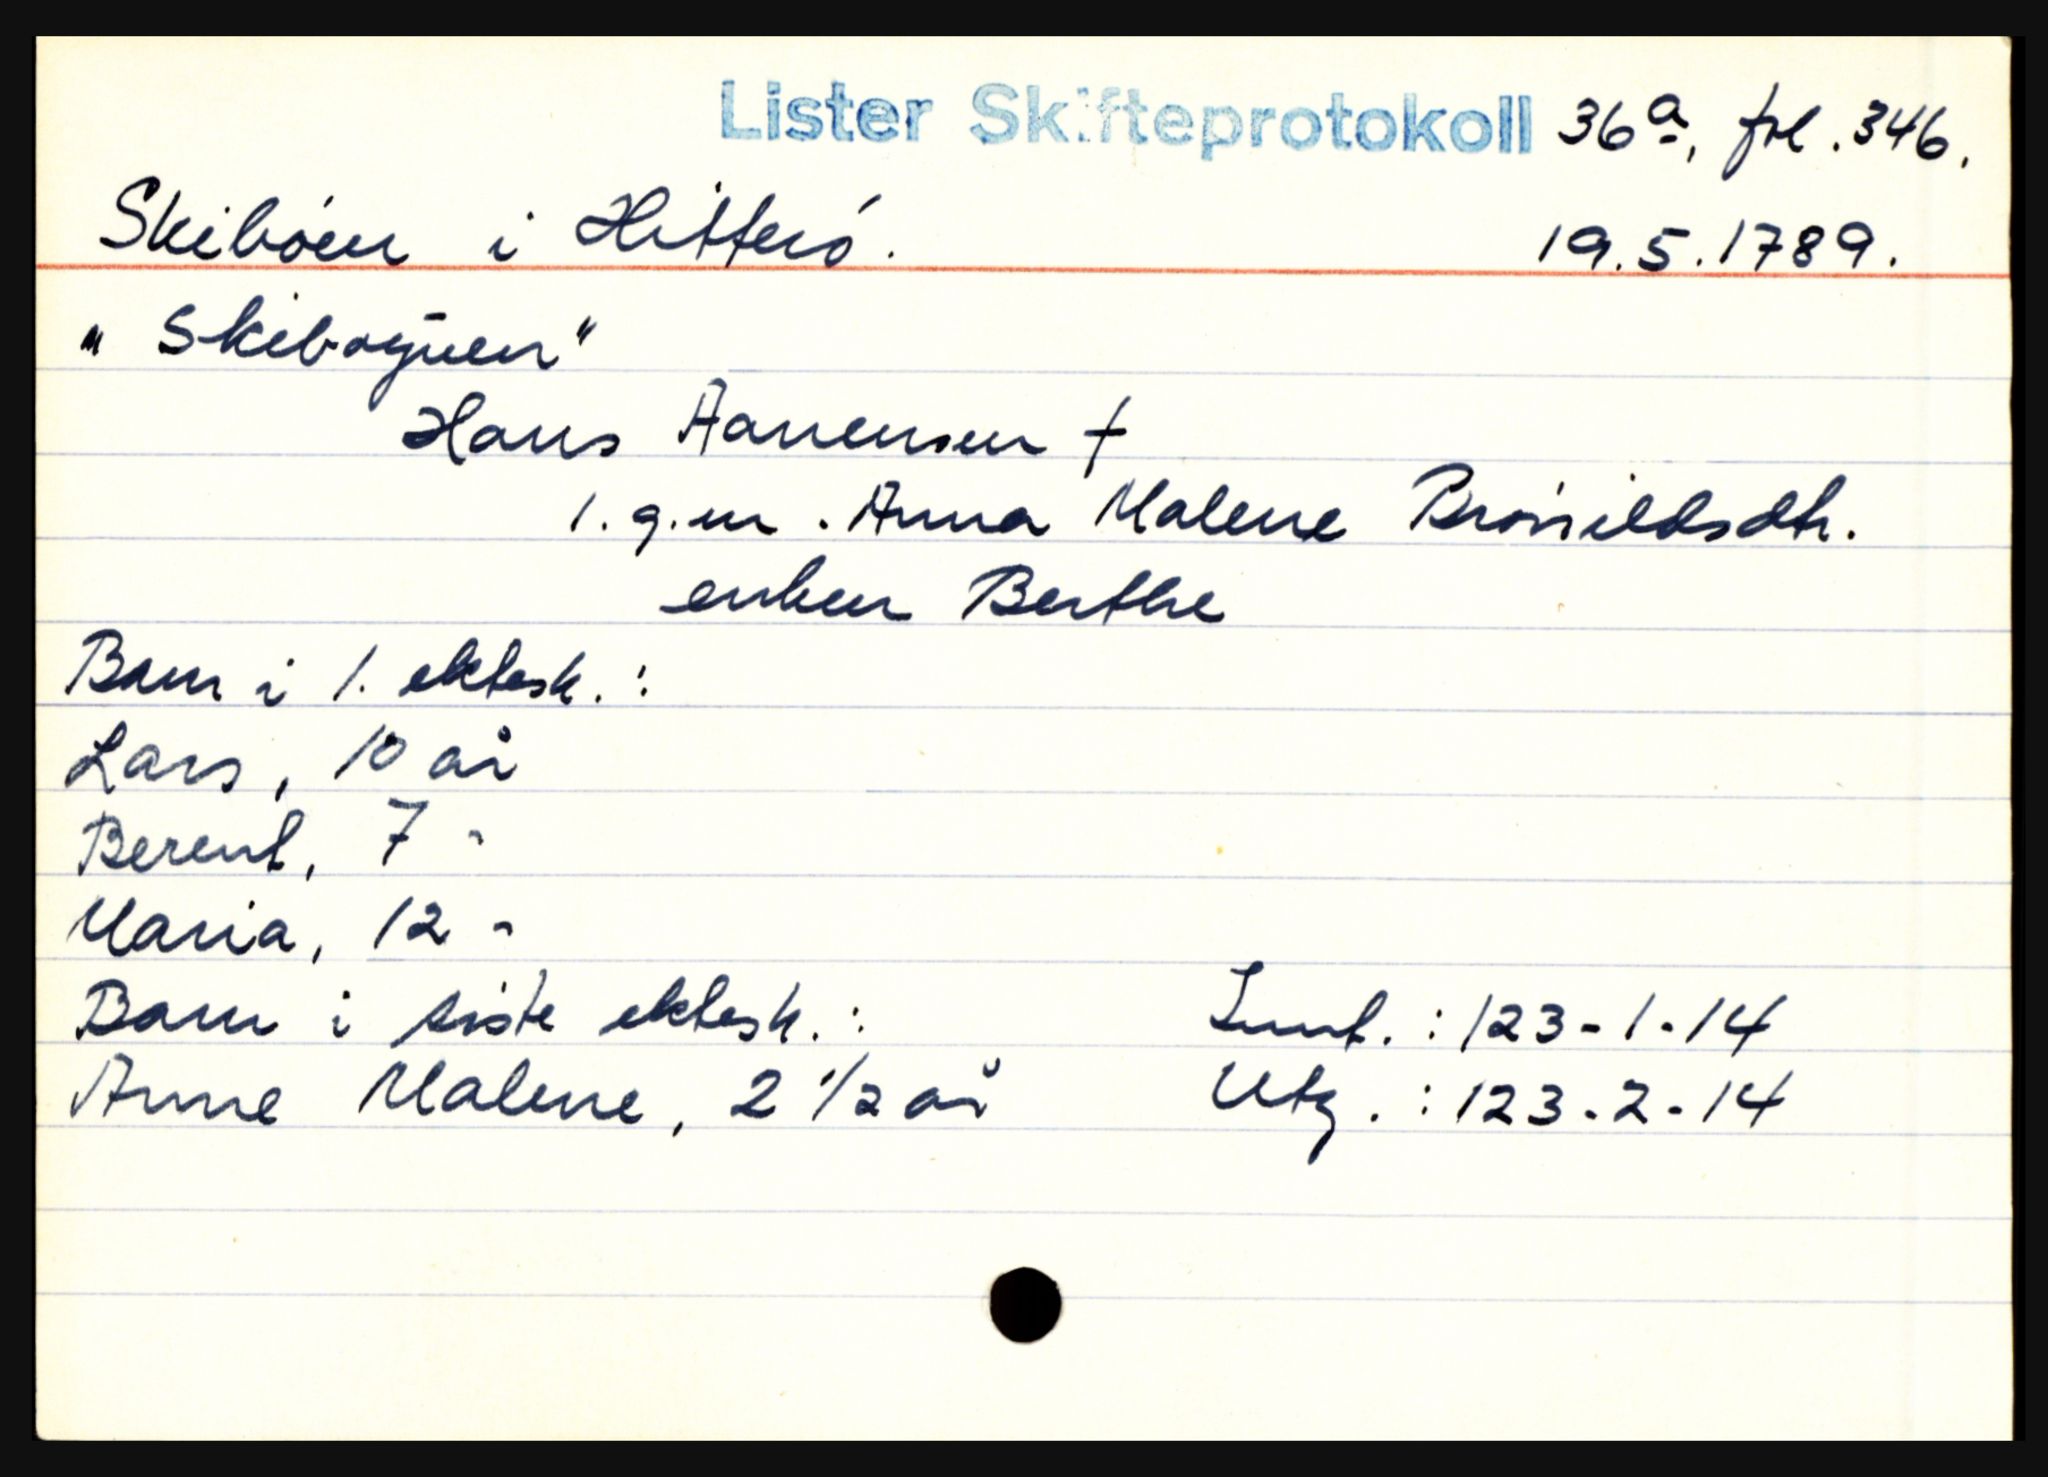 Lister Skifteprotokoll 36a, fol. 346.
Skibóen i Hitteró. 19.5.1789.
„Skibogūen"
Hans Aanensen †
1. g.m. Anna Malene Brónildsdtr.
enken Berthe
Barn i 1. ektesk.:
Lars, 10 år
Berent, 7 "
Maria, 12 "
Barn i siste ektesk.: Innt.: 123-1-14
Anne Malene, 2 1/2 år Utg.: 123-2-14